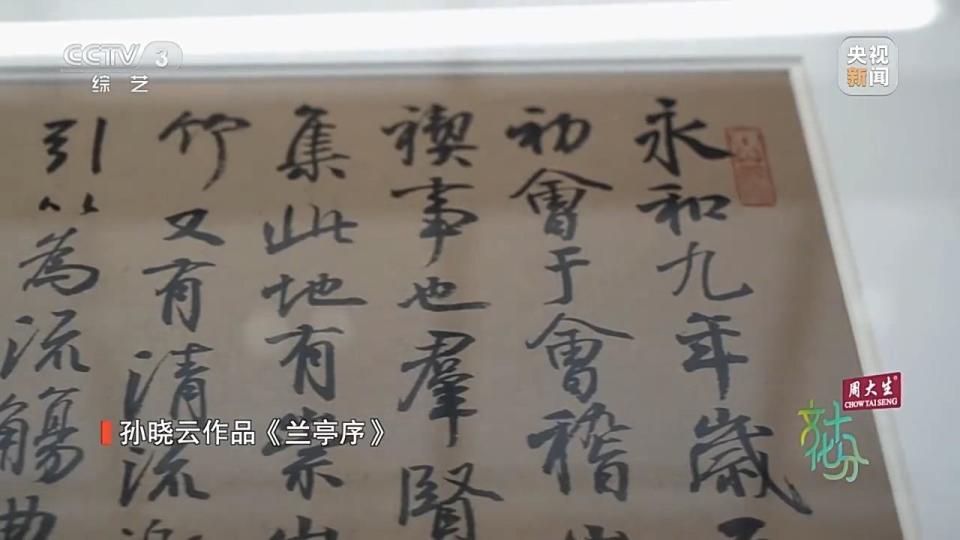 CCTV 3
综艺
央视
新闻
永和九年歲
初會于會稽
禊事也羣賢
集此地有崇
竹又有清流
引以為流觴曲
孙晓云作品《兰亭序》
周大生
CHOW TAI SENG
文化十分